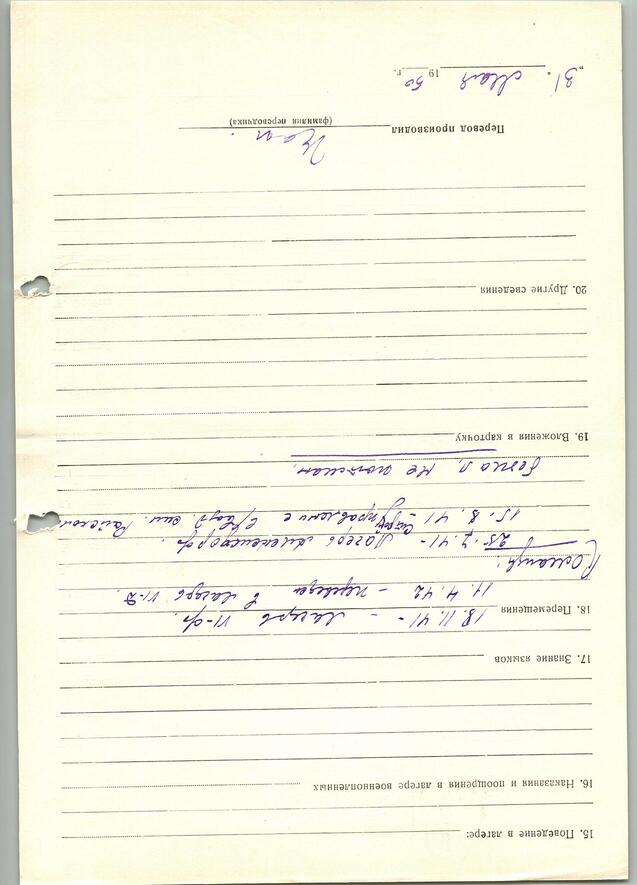 15. Поведение в лагере:
16. Наказания и поощрения в лагере военнопленных
17. Знание языков
18. Перемещения 18.11.41 - лагерь VI-ф.
11.4.42 - переведен в лагерь VI-Д.
Команды:
25.7.41 - Лагерь
15.8.41 - управление с/хоз.
бежал, не пойман.
19. Вложения в карточку
20. Другие сведения
Перевод производил
(фамилия переводчика)
„31“ Мая 1950 г.